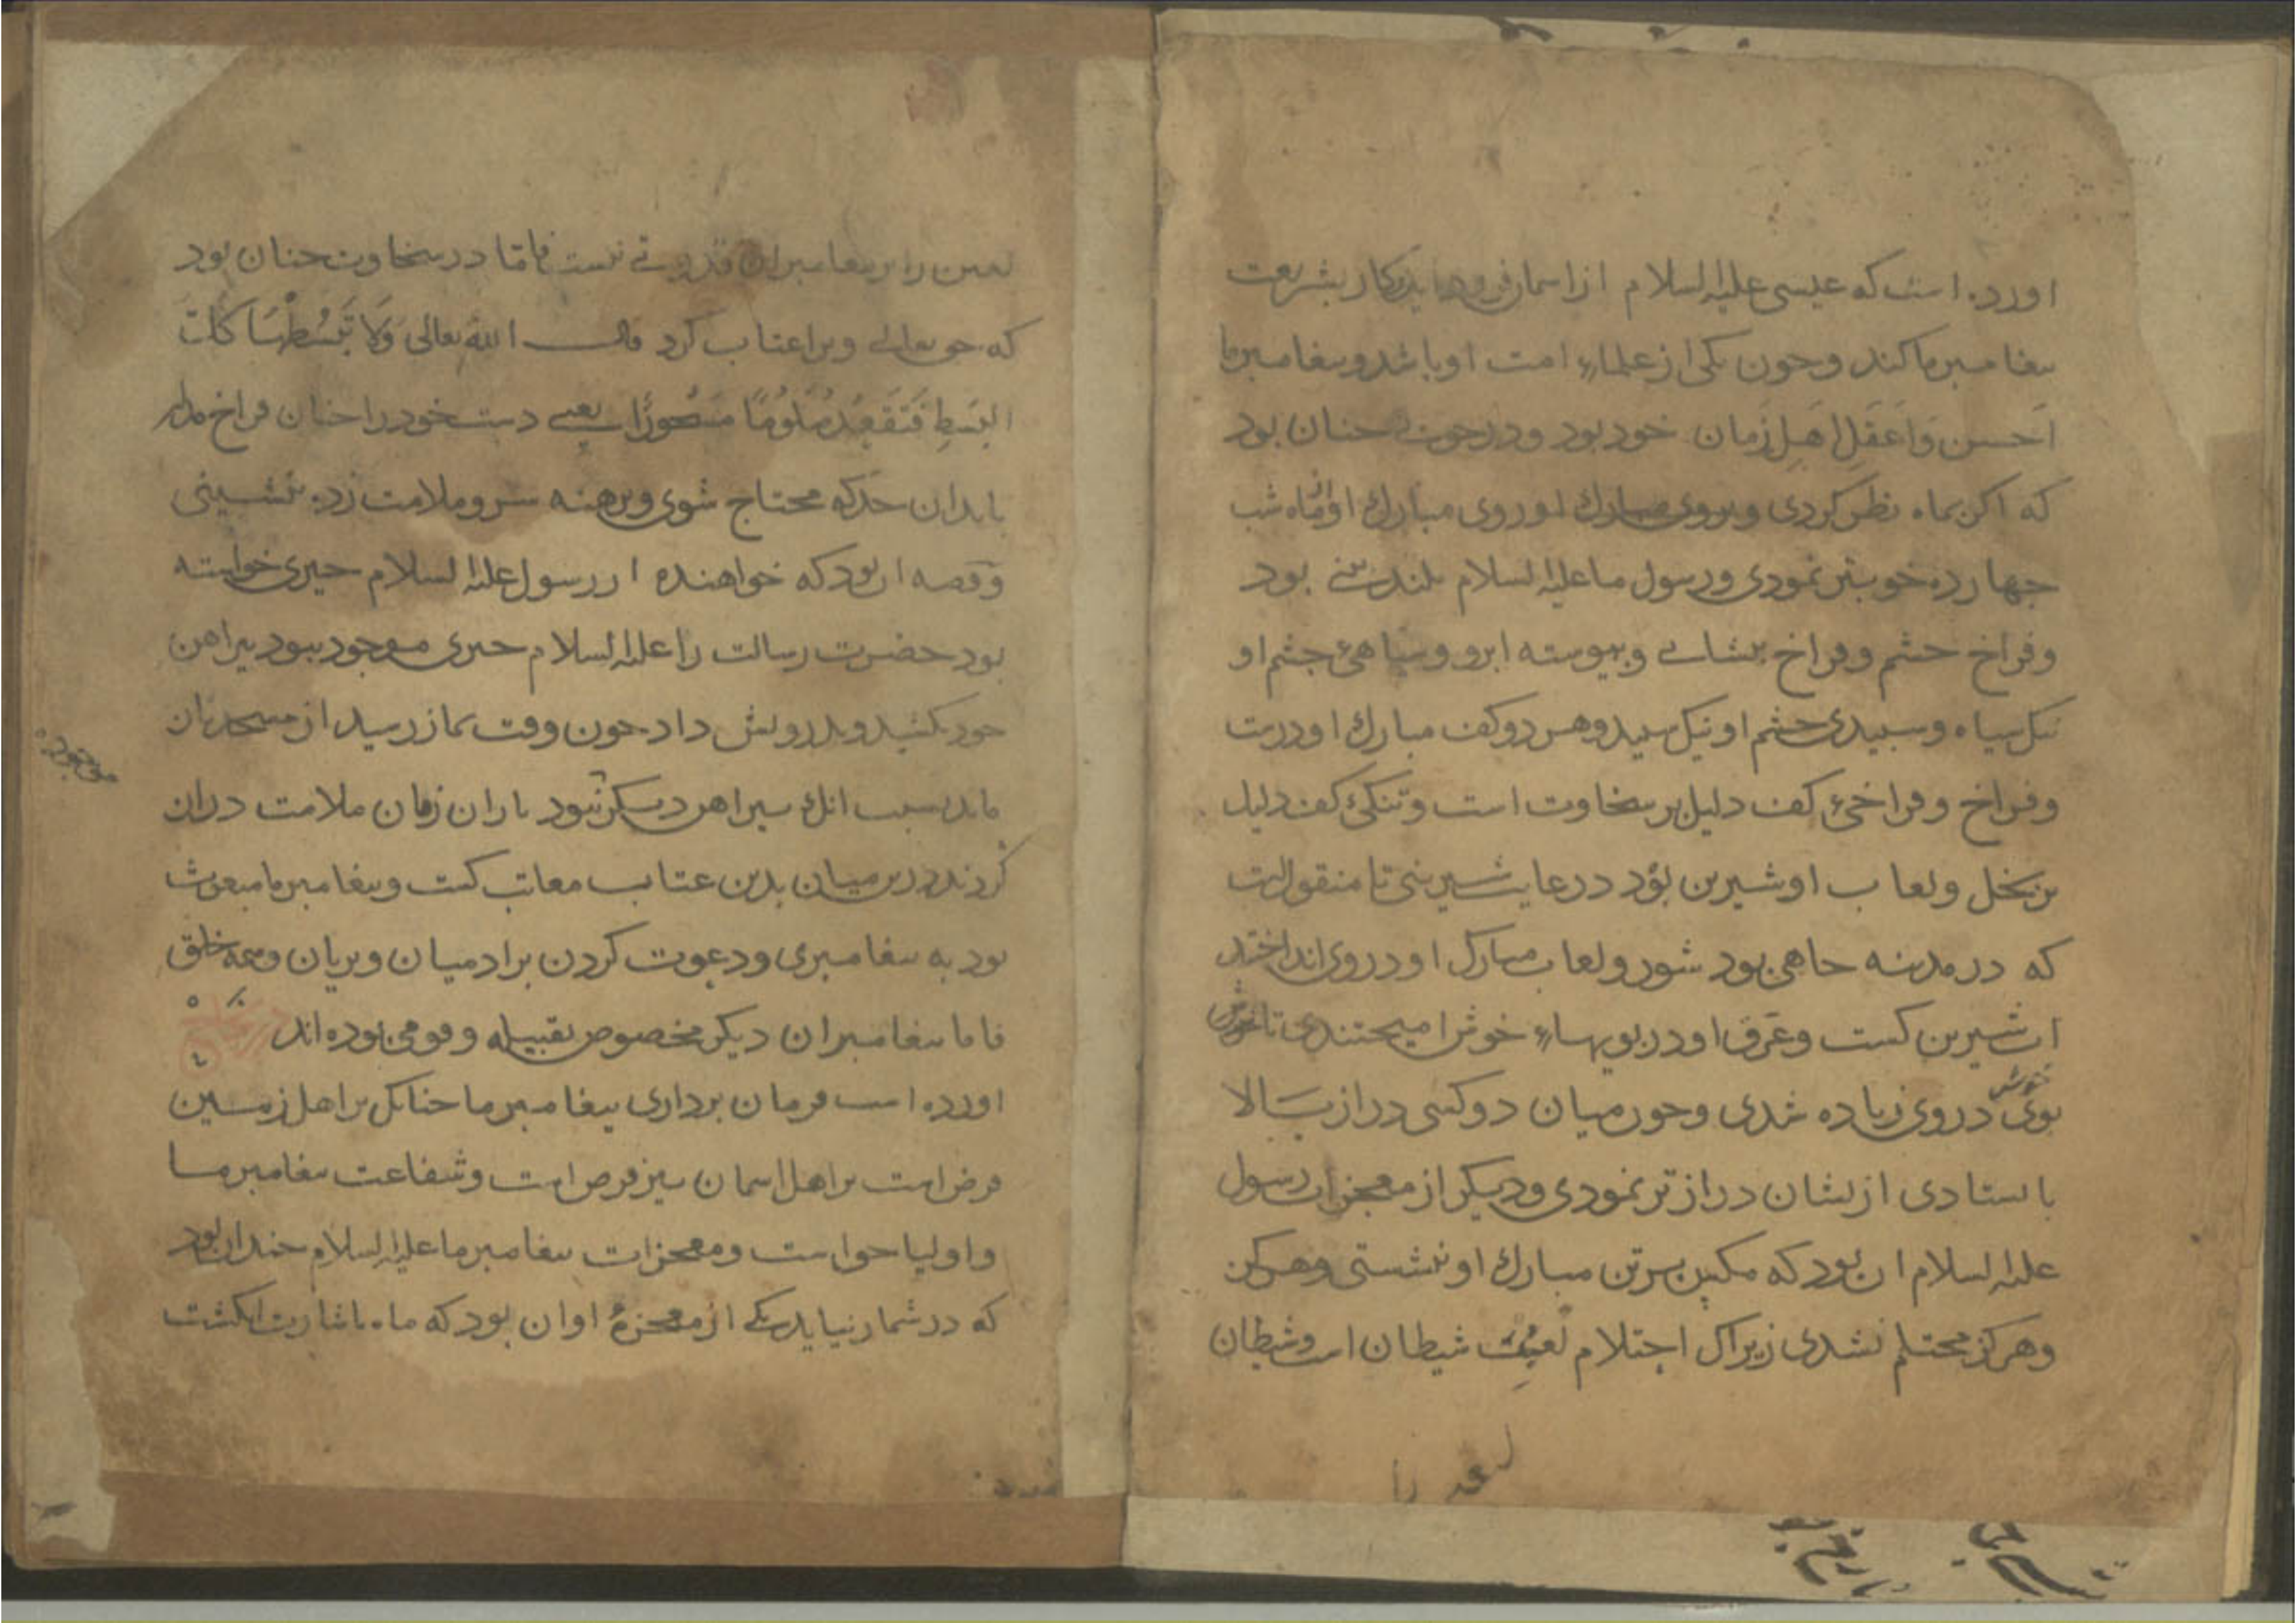 اورده است که عیسی علیه السلام از اسمان فرود اید و کار بشریعت
بیغامبر ما کند و چون یکی از علماء امت او باشد و بیغامبر ما
احسن و اعقل اهل زمان خود بود و در خوبی چنان بود
که اکر بماه نظر کردی و بروی مبارک او روی مبارک او از ماه شب
چهارده خوبتر نمودی و رسول ما علیه السلام بلند بینی بود
و فراخ چشم و فراخ بیشانی و بیوسته ابرو و سیاهئ چشم او
نیک سیاه و سبیدی چشم او نیک سبید و هر دو کف مبارک او درست
و فراخ و فراخئ کف دلیل بر سخاوت است و تنکئ کف دلیل
بر بخل و لعاب او شیرین بود در غایت شیرینی تا منقولست
که در مدینه چاهی بود شور و لعاب مبارک او در وی انداختند
اب شیرین کشت و عرق او در بویهاء خوش امیختندی تا
بوی خوش در وی زیاده شدی و چون میان دو کسی دراز بالا
بایستادی از یشان دراز تر نمودی و دیکر از معجزات رسول
علیه السلام ان بود که مکس بر تن مبارک او ننشستی
و هرکز محتلم نشدی زیراک احتلام لعبت شیطان است و شیطان
لعین را
لعین را بر بیغامبران قدرتی نیست فاما در سخاوت چنان بود
که حق تعالی ویرا عتاب کرد قال الله تعالی وَلَا تَبْسُطْهَا كُلَّ
البَسْطِ فَتَقْعُدَ مَلُومًا مَحْسُورًا یعنی دست خود را چنان فراخ مدار
بابدان حد که محتاج شوی و برهنه سر و ملامت زده بنشینی
و قصه ان بود که خواهنده از رسول علیه السلام چیزی خواسته
بود حضرت رسالت را علیه السلام چیزی موجود نبود بیراهن
خود بکشید و بدرویش داد چون وقت نماز رسید از مسجد بازان
ماند بسبب انک بیراهن دیکر نبود یاران زبان ملامت دران
کردند درین میان بدین عتاب معاتب کشت و بیغامبر ما مبعوث
بود به بیغامبری و دعوت کردن بر ادمیان و بریان و همه خلق
فاما بیغامبران دیکر مخصوص بقبیله و قومی بوده اند
اورده است فرمان برداری بیغامبر ما چنانک بر اهل زمین
فرض است بر اهل اسمان نیز فرض است و شفاعت بیغامبر ما
و اولیا حق است و معجزات بیغامبر ما علیه السلام چندان بود
که در شمار نیاید یکی از معجزهٔ او ان بود که ماه باشارت انکشت